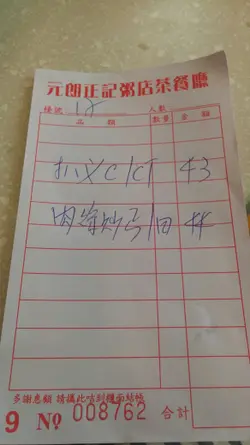 元朗正記粥店茶餐廳
檯號 17 人數
品類 數量 金額
扒乂C/CT 43
肉絲炒弓/田 44
多謝惠顧 請攜此咭到櫃面結帳
9 № 008762 合計